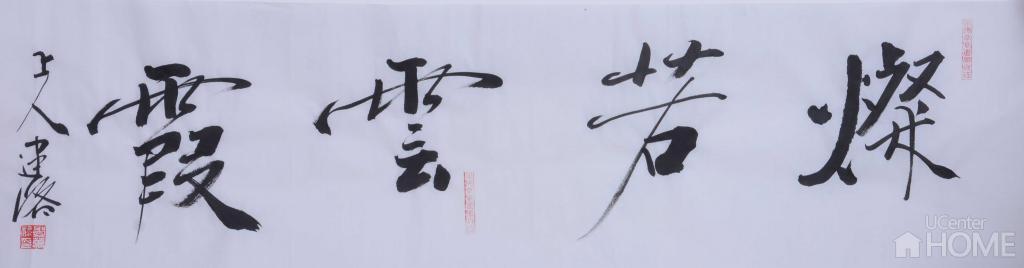 燦若雲霞
上人建潞
UCenter
HOME